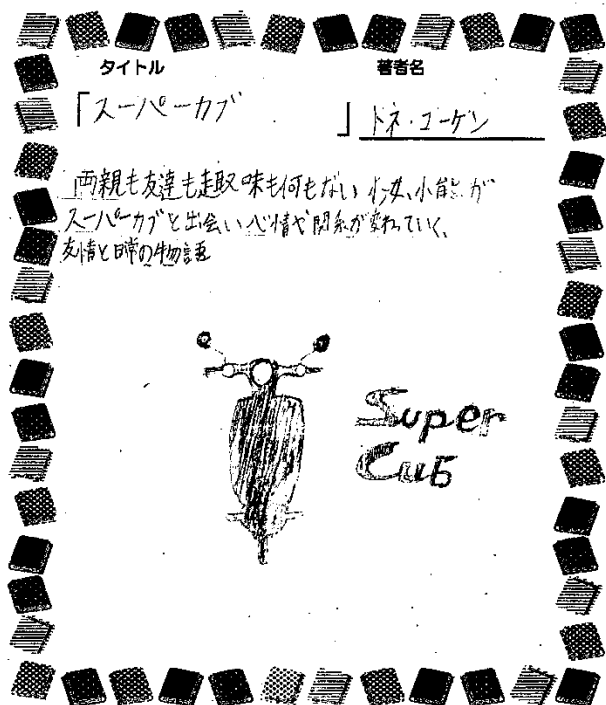 タイトル 著者名
「スーパーカブ 」 トネ・コーケン
両親も友達も趣味も何もない少女、小熊が
スーパーカブと出会い心情や関係が変わっていく、
友情と日常の物語
Super
Cub